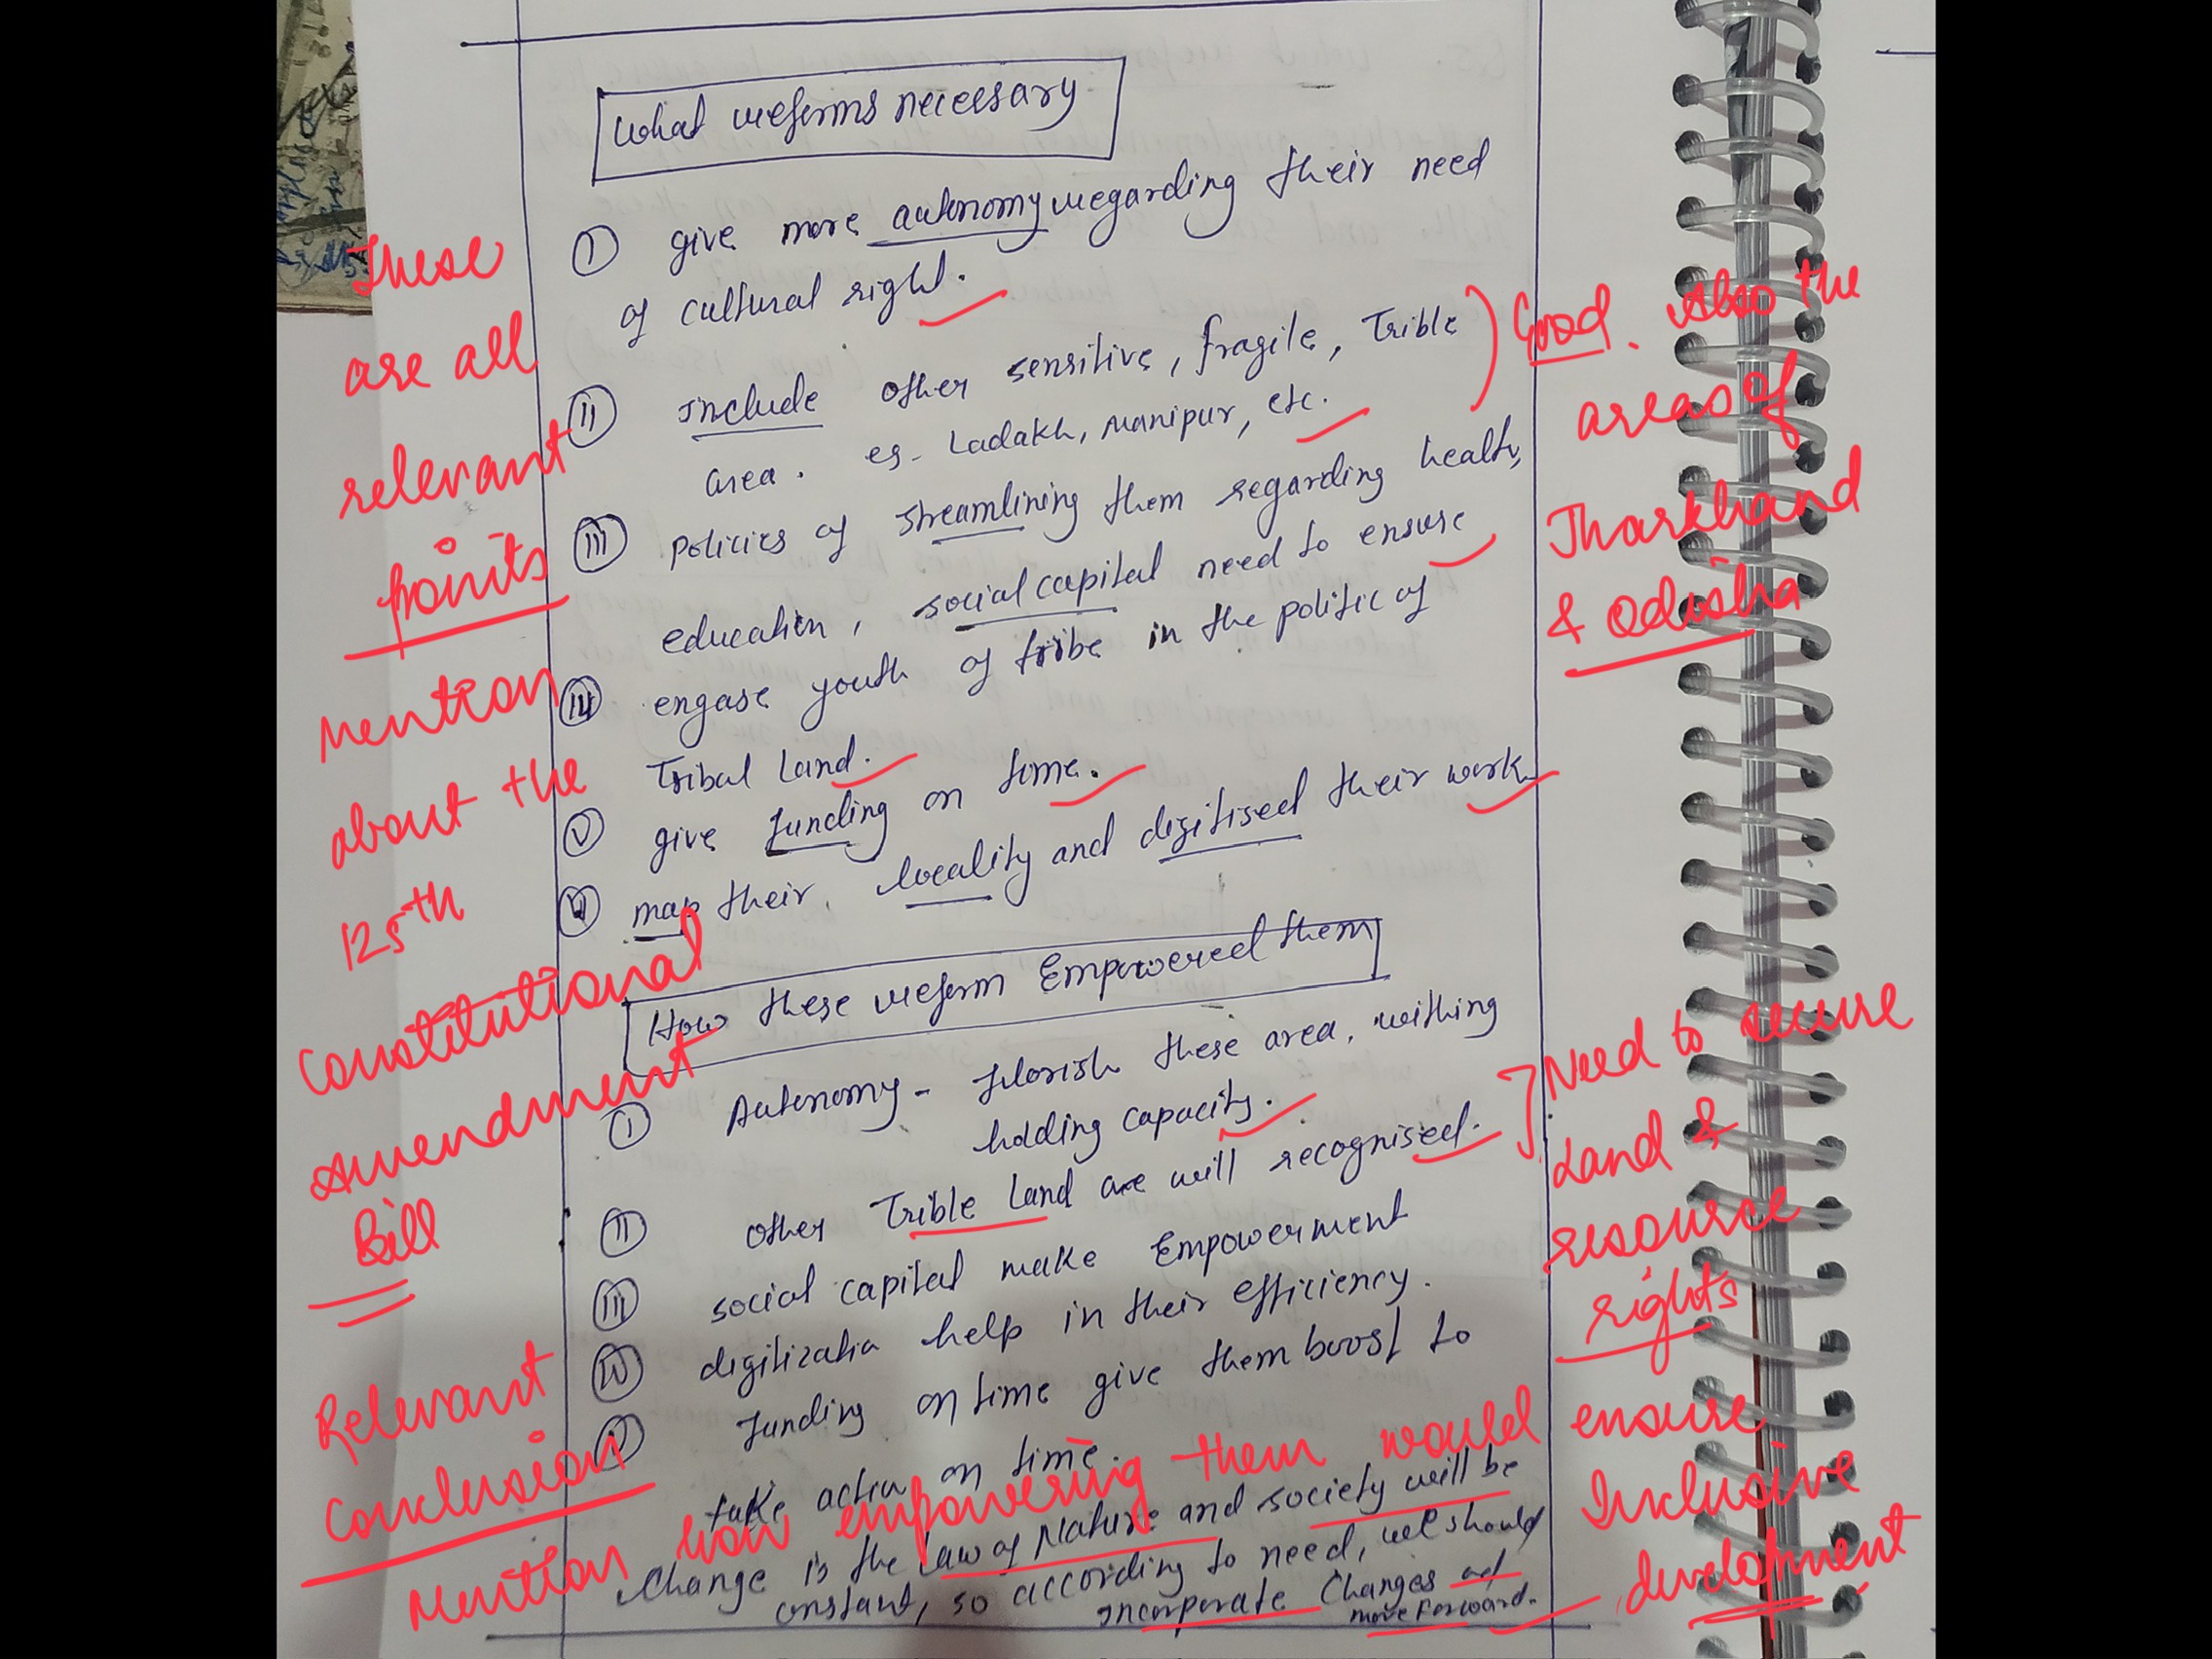 What reforms necessary
(I) give more autonomy regarding their need
of cultural right.
(II) Include other sensitive, fragile, Trible
area. eg- Ladakh, Manipur, etc.
(III) policies of streamlining them regarding health,
education, social capital need to ensure
(IV) engase youth of tribe in the politic of
Tribal Land.
(V) give funding on time.
(VI) map their locality and digitised their work
How these reform Empowered them
(I) Autonomy - florish these area, withing
holding capacity.
(II) other Trible Land are will recognised.
(III) social capital make Empowerment
(IV) digitizatia help in their efficiency.
(V) funding on time give them boost to
take action on time.
Change is the Law of Nature and society will be
constant, so according to need, we should
incorporate changes and
move forward.
These
are all
relevant
points
Mention
about the
125th
Constitutional
Amendment
Bill
Relevant
Conclusion
Mention how empowering them would ensure
Inclusive
development
Good. Also the
areas of
Jharkhand
& Odisha
Need to secure
Land &
resource
rights